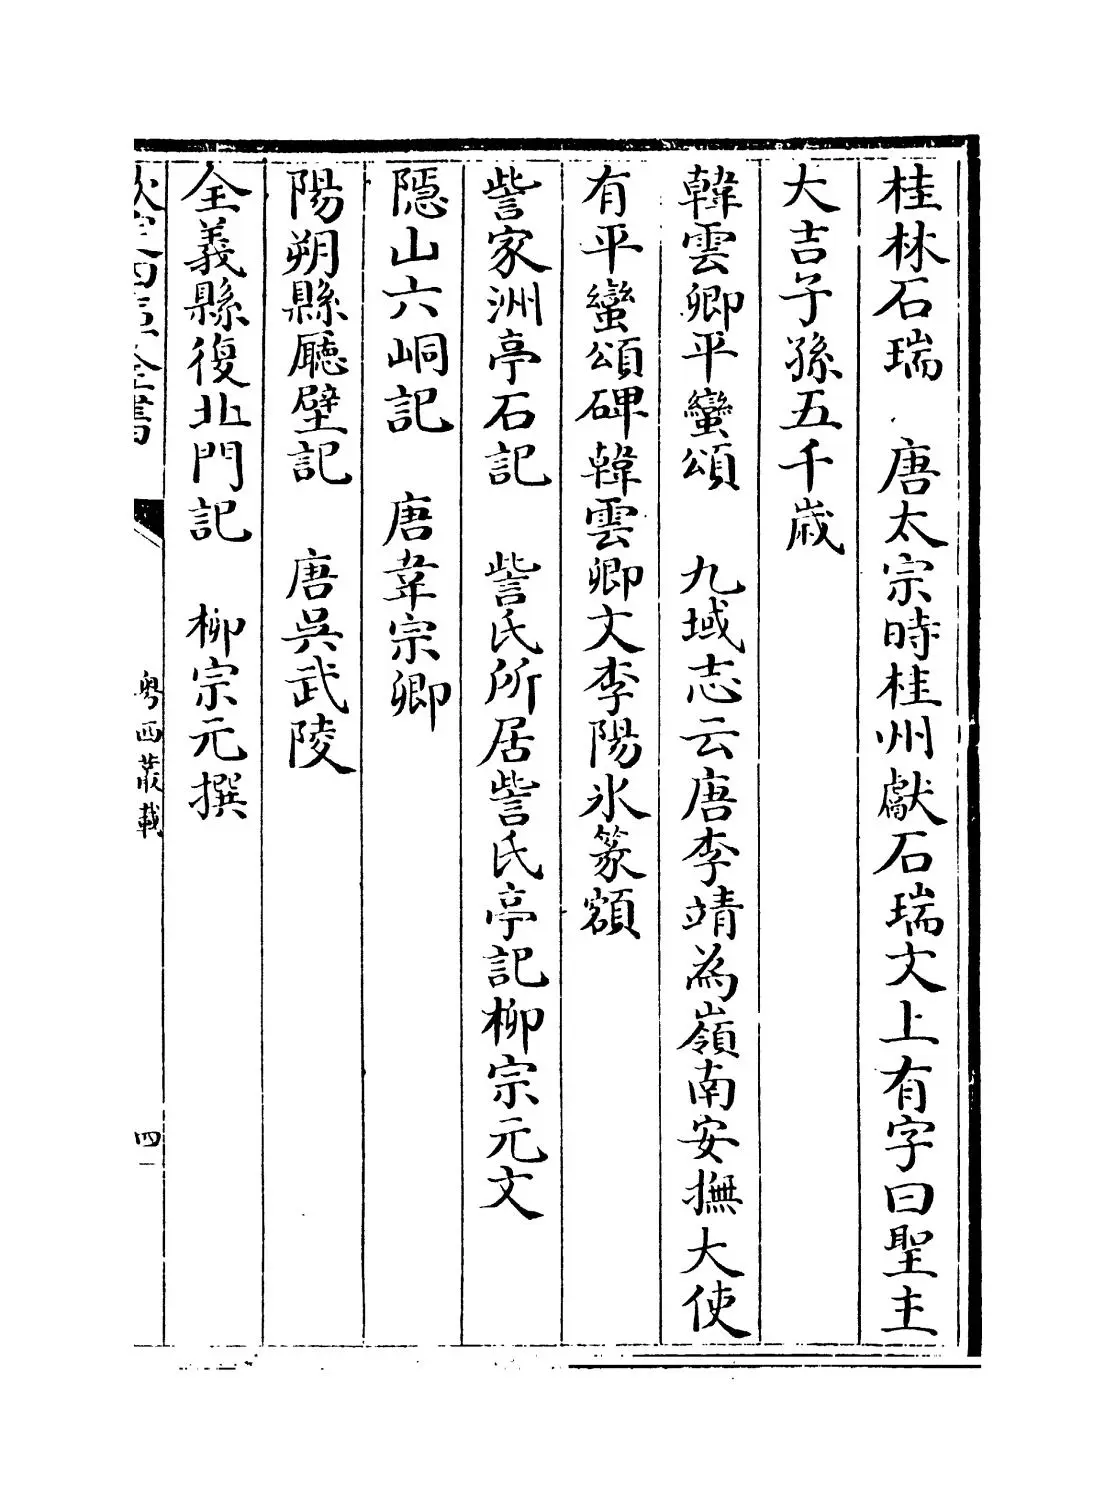 桂林石瑞　唐太宗時桂州獻石瑞文上有字曰聖主
大吉子孫五千歲
韓雲卿平蠻頌　九域志云唐李靖為嶺南安撫大使
有平蠻頌碑韓雲卿文李陽氷篆額
訾家洲亭石記　訾氏所居訾氏亭記柳宗元文
隱山六峒記　唐韋宗卿
陽朔縣廳壁記　唐吳武陵
全義縣復北門記　柳宗元撰
欽定四庫全書
粵西叢載
四